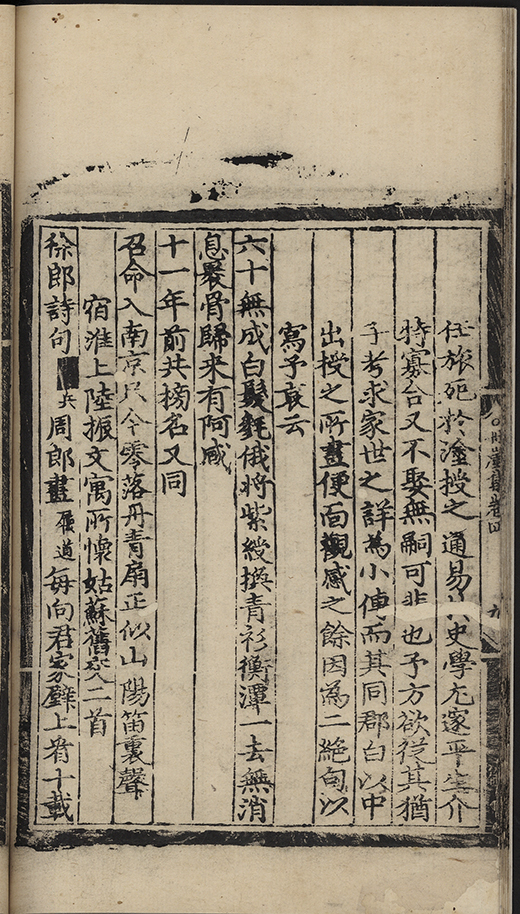 任旅死於塗授之通易㫖史學尤邃平生介
特寡合又不娶無嗣可悲也予方欲從其猶
子考求家世之詳為小傳而其同郡白以中
出授之所畫便面觀感之餘因為二絕句以
寫予哀云
六十無成白髮毵俄將紫綬換青衫衡潭一去無消
息裹骨歸来有阿咸
十一年前共榜名又同
召命入南京只今零落丹青扇正似山陽笛裏聲
宿淮上陸振文寓所懷姑蘇舊友二首
徐郎詩句 共 周郎畫 履道 每向君家壁上看十載
集卷四
九